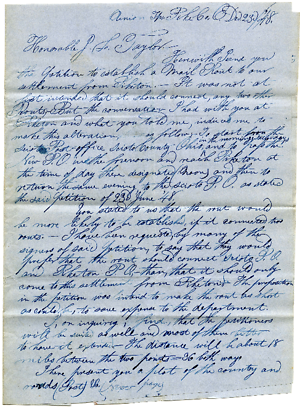 Pike Co. O.
Honorable J. L. Taylor
Herewith I send you
the Petition to establish a Mail Rout to our
settlement from Piketon It was not at
first intended that it should connect any two other
the conversation I had with you at
Piketon and what you told me, induce me to
make this alteration, as follows. To start from the
Scioto Post office Scioto County Ohio and to pass the
New P.O. in the forenoon and reach Piketon at
the time of day there designated (Noon) and then to
return the same evening to the Scioto P.O. as stated
the said petition of 23d June
You stated to us that the rout would
be more likely to be established if it connected two
routs I have been requested by many of the
signers of said petition to say that they would
prefer that the rout should connect Scioto P.O.
and Piketon P.O. than that it should only
come to this settlement from Piketon The
in the petition was intend to make the rout as short
as could be to save expense to the department
I, on inquiry find, that the petitioners
will be suited as well and most of them better
to have it extended The distance will be about 18
miles between the two points 36 both ways
I here present you a plot of the country and
roads